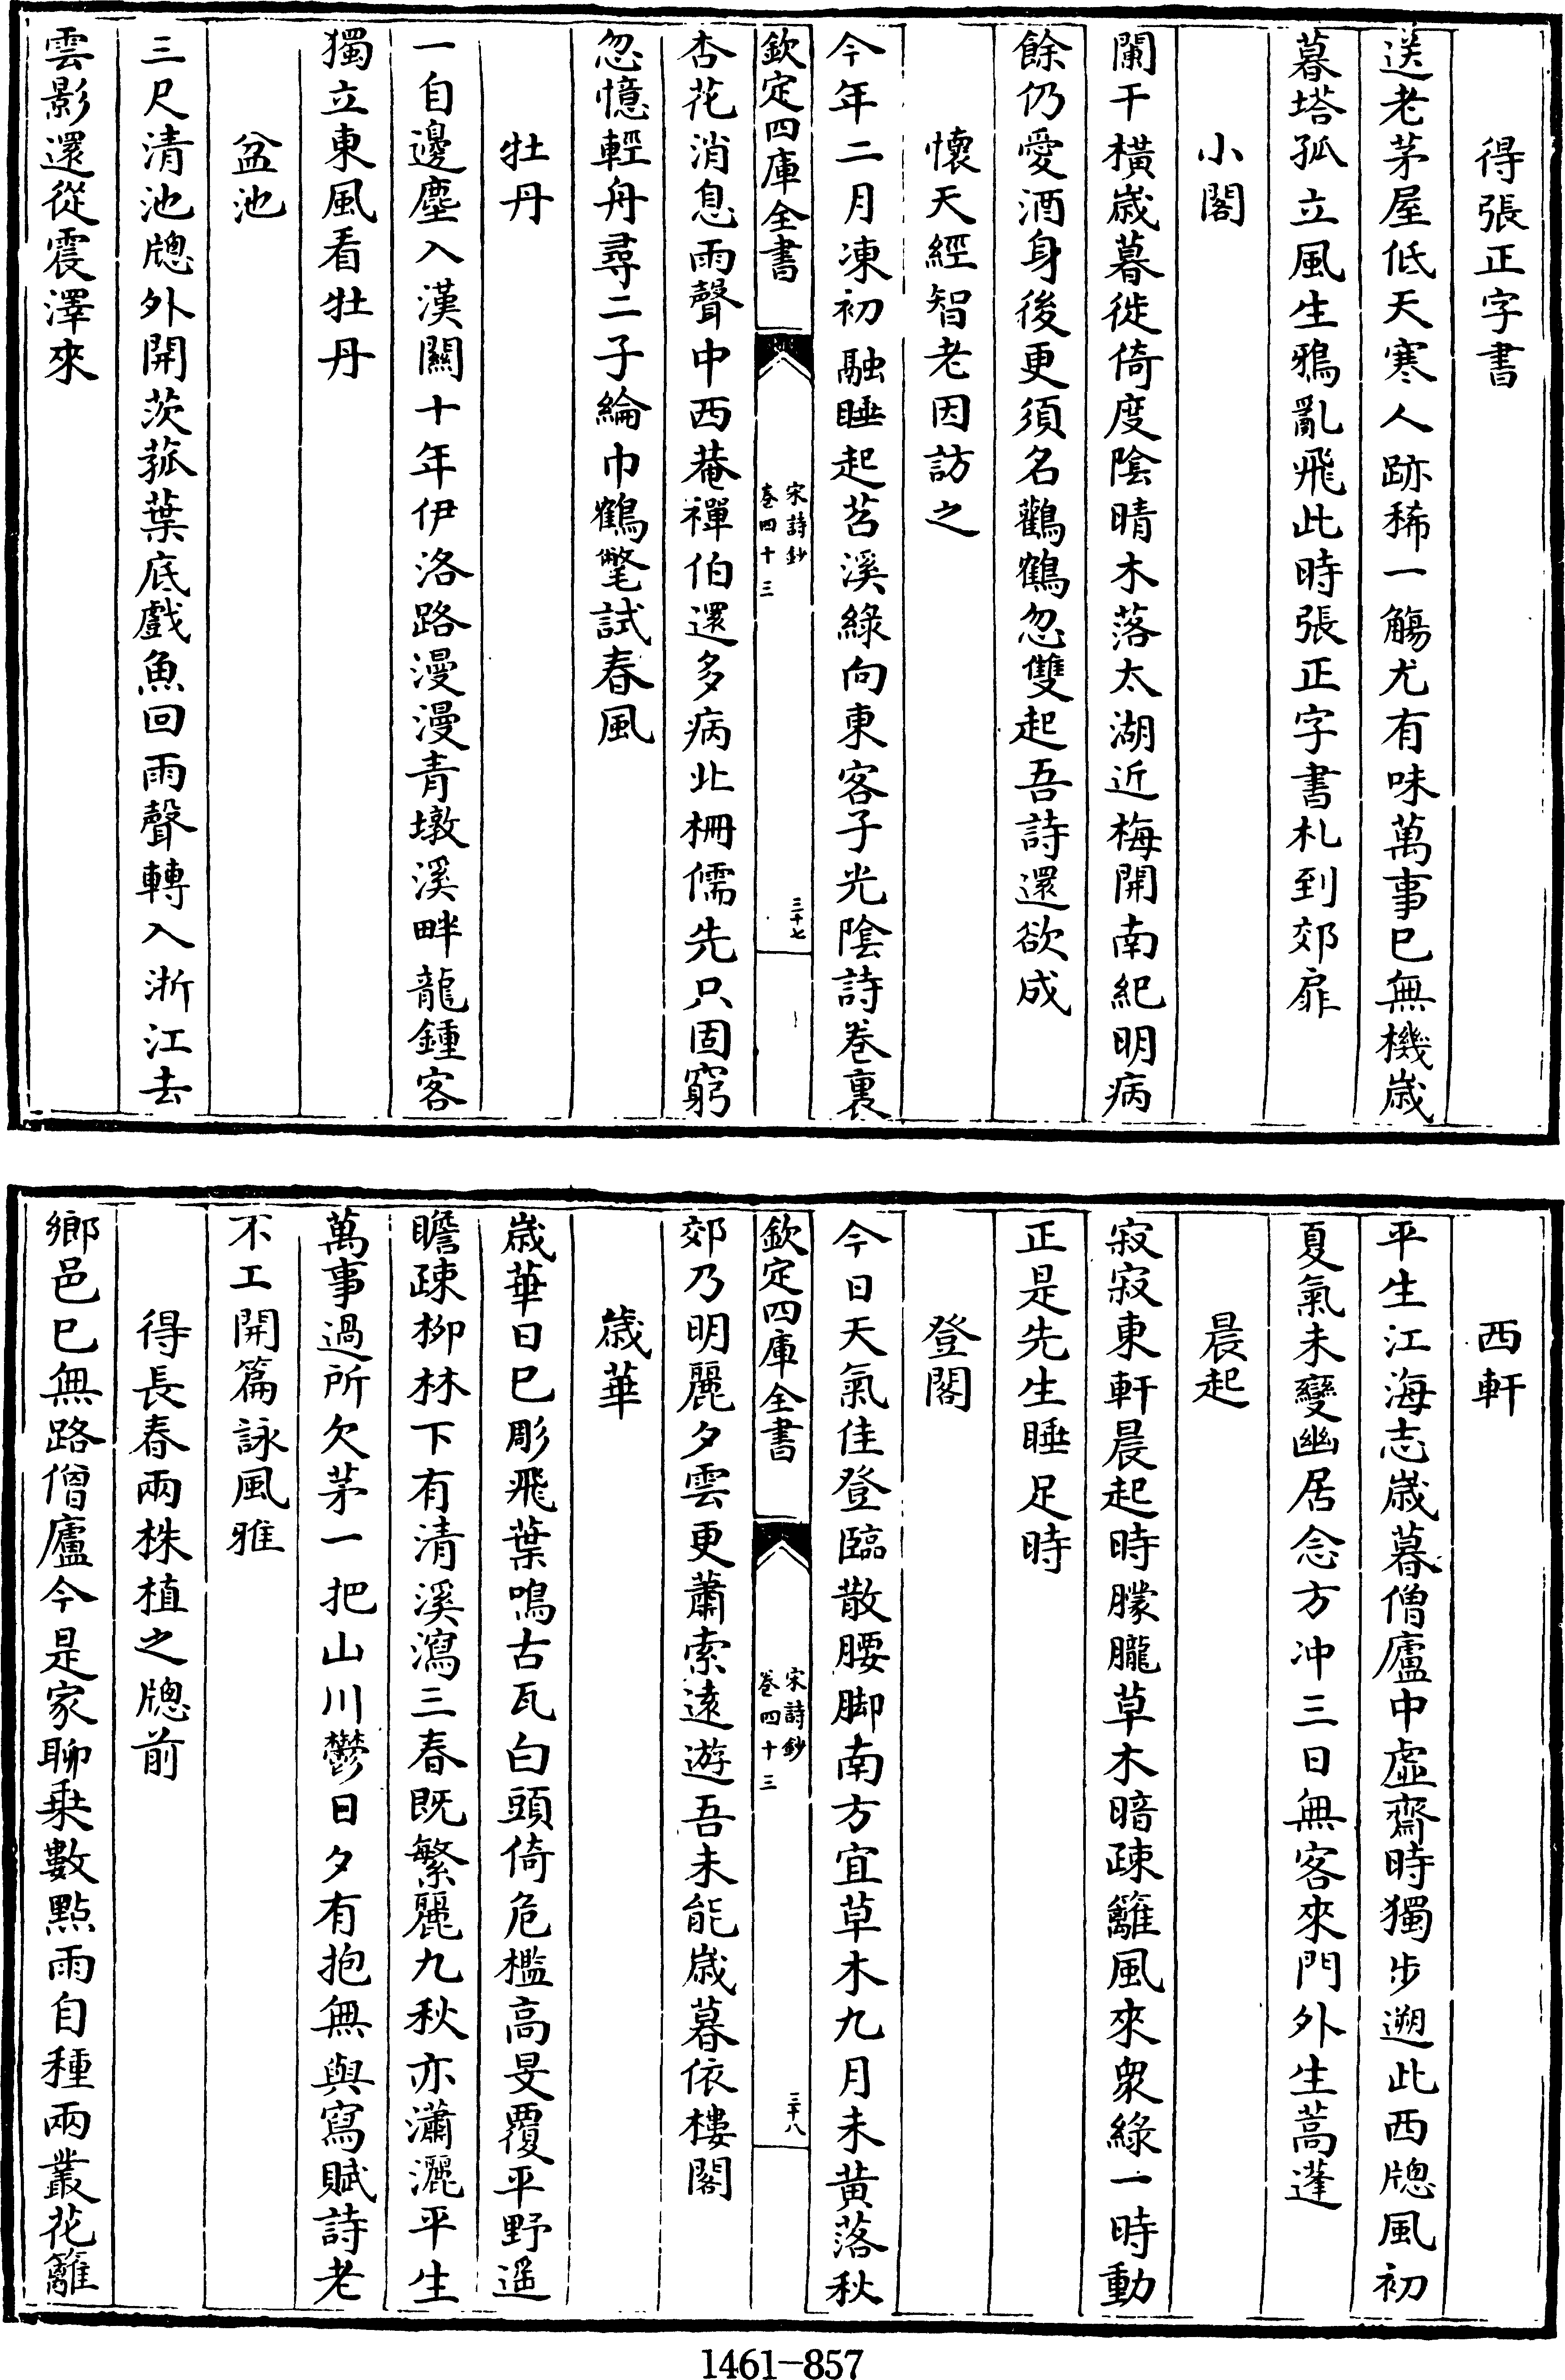 得張正字書
送老茅屋低天寒人跡稀一觴尤有味萬事已無機歲
暮塔孤立風生鴉亂飛此時張正字書札到郊扉
小閣
闌干橫歲暮徙倚度陰晴木落太湖近梅開南紀明病
餘仍愛酒身後更須名鸛鶴忽雙起吾詩還欲成
懷天經智老因訪之
今年二月凍初融睡起苕溪綠向東客子光陰詩卷裏
欽定四庫全書
宋詩鈔
卷四十三
三十七
杏花消息雨聲中西菴禪伯還多病北柵儒先只固窮
忽憶輕舟尋二子綸巾鶴氅試春風
牡丹
一自邊塵入漢關十年伊洛路漫漫青墩溪畔龍鍾客
獨立東風看牡丹
盆池
三尺清池牕外開茨菰葉底戲魚回雨聲轉入淅江去
雲影還從震澤來
西軒
平生江海志歲暮僧廬中虛齋時獨步遡此西牕風初
夏氣未變幽居念方冲三日無客來門外生蒿蓬
晨起
寂寂東軒晨起時朦朧草木暗疎籬風來衆綠一時動
正是先生睡足時
登閣
今日天氣佳登臨散腰脚南方宜草木九月未黄落秋
欽定四庫全書
宋詩鈔
卷四十三
三十八
郊乃明麗夕雲更蕭索遠遊吾未能歲暮依樓閣
歲華
歲華日已彫飛葉鳴古瓦白頭倚危檻高旻覆平野遥
瞻疎柳林下有清溪瀉三春既繁麗九秋亦瀟灑平生
萬事過所欠茅一把山川鬱日夕有抱無與寫賦詩老
不工開篇詠風雅
得長春兩株植之牕前
鄉邑已無路僧廬今是家聊乗數點雨自種兩叢花籬
1461-857